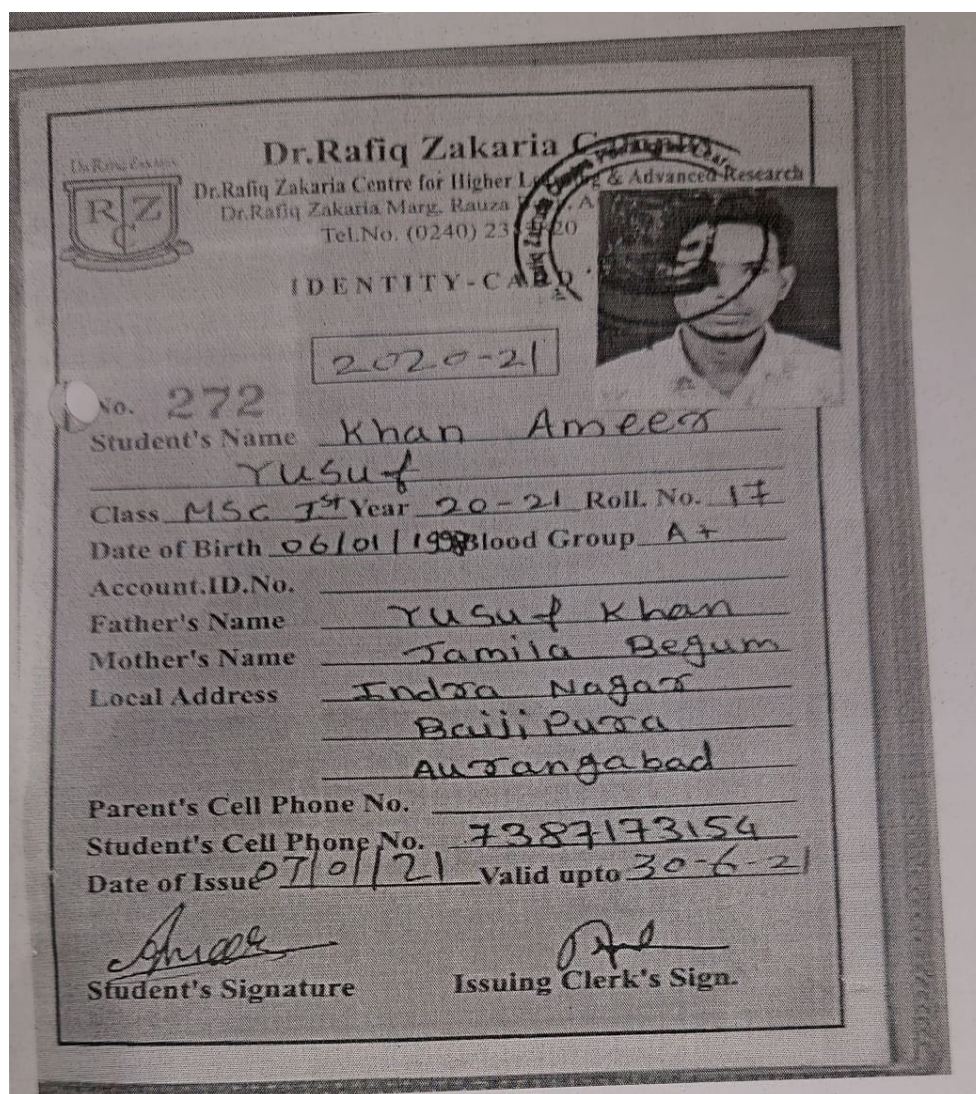 Dr.Rafiq Zakaria
Dr.Rafiq Zakaria Centre for Higher & Advanced Research
Dr.Rafiq Zakaria Marg, Rauza
Tel.No. (0240)
R Z C
IDENTITY-CARD
2020-21
No. 272
Student's Name Khan Ameer
Yusuf
Class MSC Ist Year 20-21 Roll. No. 17
Date of Birth 06/01/1998 Blood Group A+
Account.ID.No.
Father's Name Yusuf Khan
Mother's Name Jamila Begum
Local Address Indra Nagar
Baiji Pura
Aurangabad
Parent's Cell Phone No.
Student's Cell Phone No. 7387173154
Date of Issue 07/01/21 Valid upto 30-6-21
Student's Signature Issuing Clerk's Sign.